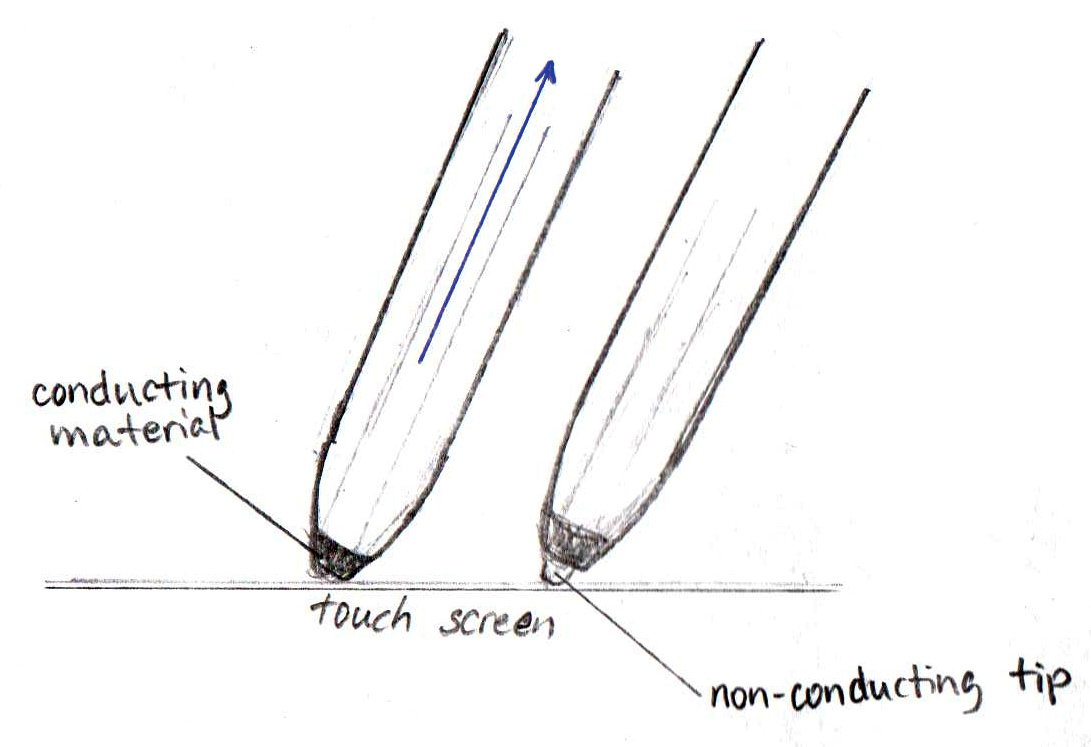 conducting
material
touch screen
non-conducting tip